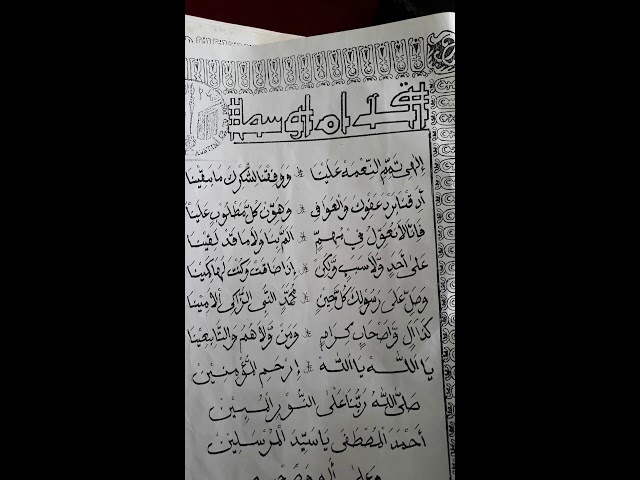 إِلٰهِي تَمِّمِ النِّعْمَةَ عَلَيْنَا * وَوَفِّقْنَا لِشُكْرِكَ مَا بَقِيْنَا
أَذِقْنَا بَرْدَ عَفْوِكَ وَالْعَوَافِي * وَهَوِّنْ كُلَّ مَطْلُوبٍ عَلَيْنَا
فَإِنَّا لَا نُعَوِّلُ فِيْ مُهِمٍّ * أَلَمَّ بِنَا وَلَا مَا قَدْ لَقِيْنَا
عَلَى أَحَدٍ وَلَا سَبَبٍ وَلٰكِنْ * إِذَا ضَاقَتْ وَكُنْتَ لَهَا كَمِيْنَا
وَصَلِّ عَلَى رَسُوْلِكَ كُلَّ حِيْنٍ * مُحَمَّدٍ النَّبِى الزَّاكِى الْأَمِيْنَا
كَذَا آلٍ وَأَصْحَابٍ كِرَامٍ * وَمَنْ وَلَاهُمُ وَالتَّابِعِيْنَا
يَا اَللّٰه يَا اَللّٰه * إِرْحَمِ الْمُؤْمِنِيْنَ
صَلَّى اللّٰهُ رَبُّنَا عَلَى النُّوْرِ الْمُبِيْنِ
أَحْمَدَ الْمُصْطَفَى يَا سَيِّدَ الْمُرْسَلِيْنَ
وَعَلَى آلِهِ وَصَحْبِهِ